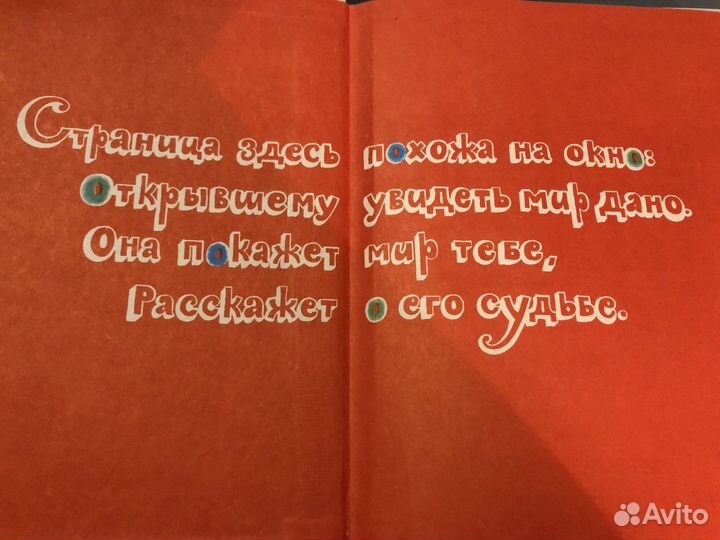 Страница здесь похожа на окно:
Открывшему увидеть мир дано.
Она покажет мир тебе,
Расскажет о его судьбе.
Avito